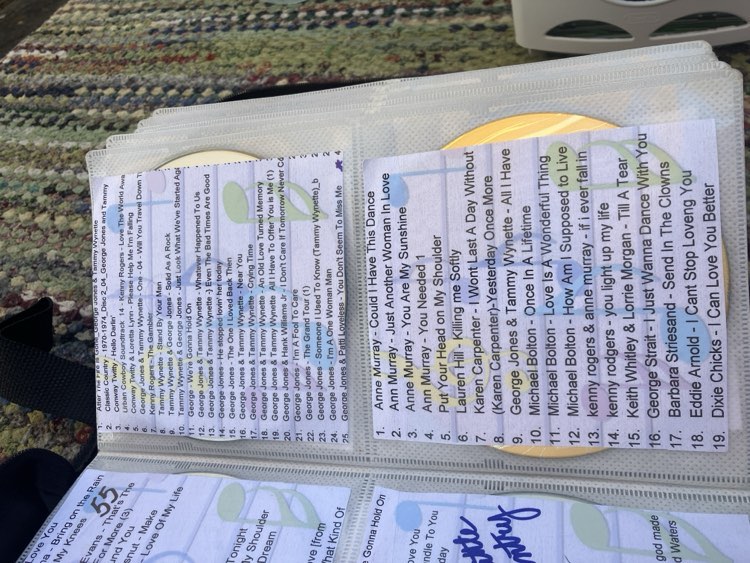 1. After the Fire is Gone, George Jones & Tammy Wynette
2. Classic Country 1970-1974_Disc 2_04_George Jones and Tammy
3. Conway Twitty - Hello Darlin'
4. Urban Cowboy Soundtrack 14 - Kenny Rogers - Love The World Awa
5. Conway Twitty & Loretta Lynn - Please Help Me I'm Falling
6. George Jones & Tammy Wynette - One - 04 - Will You Travel Down T
7. Kenny Rogers - The Gambler
8. Tammy Wynette - Stand By Your Man
9. Tammy Wynette & George Jones - Solid As A Rock
10. Tammy Wynette & George Jones - Just Look What We've Started Aga
11. George Jones - We're Gonna Hold On
12. George Jones & Tammy Wynette - Whatever Happened To Us
13. George Jones & Tammy Wynette - Even The Bad Times Are Good
14. George Jones - He stopped lovin' her today
15. George Jones - The One I Loved Back Then
16. George Jones & Tammy Wynette - Near You
17. George Jones & Tammy Wynette - Crying Time
18. George Jones & Tammy Wynette - An Old Love Turned Memory
19. George Jones & Tammy Wynette All I Have To Offer You is Me (1)
20. George Jones & Hank Williams Jr - I Don't Care If Tomorrow Never Co
21. George Jones - I'm A Fool To Care
22. George Jones - The Grand Tour (1)
23. George Jones - Someone I Used To Know (Tammy Wynette)_b
24. George Jones - I'm A One Woman Man
25. George Jones & Patti Loveless - You Don't Seem To Miss Me
1. Anne Murray - Could I Have This Dance
2. Ann Murray - Just Another Woman In Love
3. Anne Murray - You Are My Sunshine
4. Ann Murray - You Needed 1
5. Put Your Head on My Shoulder
6. Lauryn Hill - Killing me Softly
7. Karen Carpenter - I Wont Last A Day Without
8. (Karen Carpenter)-Yesterday Once More
9. George Jones & Tammy Wynette - All I Have
10. Michael Bolton - Once In A Lifetime
11. Michael Bolton - Love Is A Wonderful Thing
12. Michael Bolton - How Am I Supposed to Live
13. kenny rogers & anne murray - if i ever fall in
14. kenny rodgers - you light up my life
15. Keith Whitley & Lorrie Morgan - Till A Tear
16. George Strait - I Just Wanna Dance With You
17. Barbara Striesand - Send In The Clowns
18. Eddie Arnold - I Cant Stop Loveng You
19. Dixie Chicks - I Can Love You Better
Love You
na - Bring on the Rain
My Knees
55
Evans - That's The
For More (3)
und You
snut - Make
- Love Of My Life
Tonight
My Shoulder
Dream
ove [from
What Kind Of
e Gonna Hold On
ove You
ndle To You
day
god made
d Waters